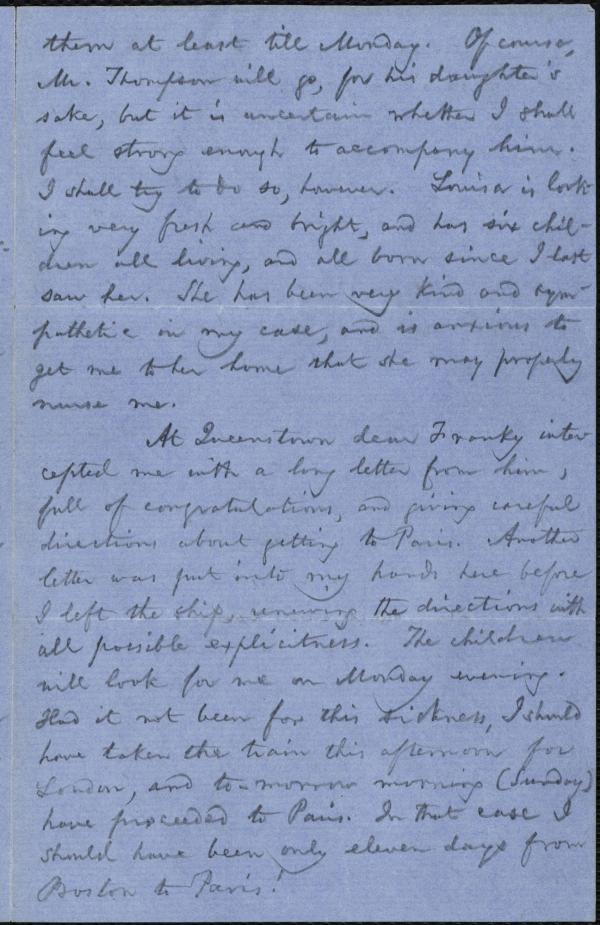 them at least till Monday. Of course,
Mr. Thompson will go, for his daughter's
sake, but it is uncertain whether I shall
feel strong enough to accompany him.
I shall try to do so, however. Louisa is look-
ing very fresh and bright, and has six chil-
dren all living, and all born since I last
saw her. She has been very kind and sym-
pathetic in my case, and is anxious to
get me to her home that she may properly
nurse me.
At Queenstown dear Franky inter
cepted me with a long letter from him,
full of congratulations, and giving careful
directions about getting to Paris. Another
letter was put into my hands here before
I left the ship, renewing the directions with
all possible explicitness. The children
will look for me on Monday evening.
Had it not been for this sickness, I should
have taken the train this afternoon for
London, and to-morrow morning (Sunday)
have proceeded to Paris. In that case I
should have been only eleven days from
Boston to Paris!